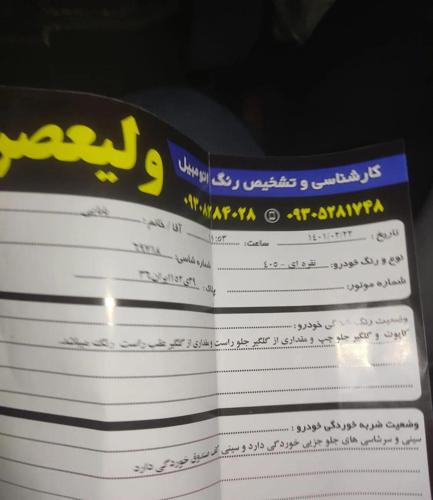 ولیعصر
کارشناسی و تشخیص رنگ اتومبیل
۰۹۳۰۵۲۸۱۷۴۸ ۰۹۳۰۵۲۸۴۰۲۸
تاریخ : ۱۴۰۱/۰۳/۲۳ ساعت: ۱۱:۵۳ آقا / خانم :
نوع و رنگ خودرو: نقره ای - ۴۰۵ شماره شاسی:
شماره موتور: پلاک: ۳۹ی۱۵۲ایران۳۶
وضعیت رنگ خودرو :
کاپوت و گلگیر جلو چپ و مقداری از گلگیر جلو راست و مقداری از گلگیر عقب راست رنگ میباشد.
وضعیت ضربه خوردگی خودرو :
سینی و سرشاسی های جلو جزیی خوردگی دارد و سینی کف صندوق خوردگی دارد